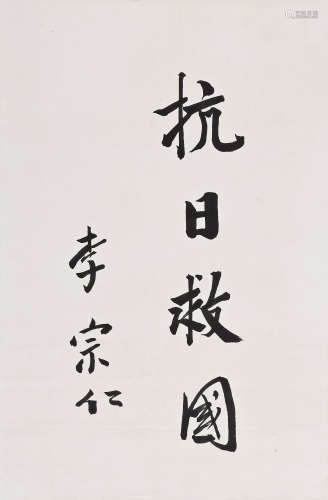 抗日救國
李宗仁